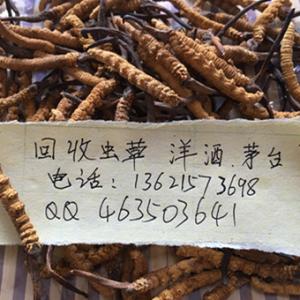 回收虫草 洋酒.茅台
电话:13621573698
QQ 463503641